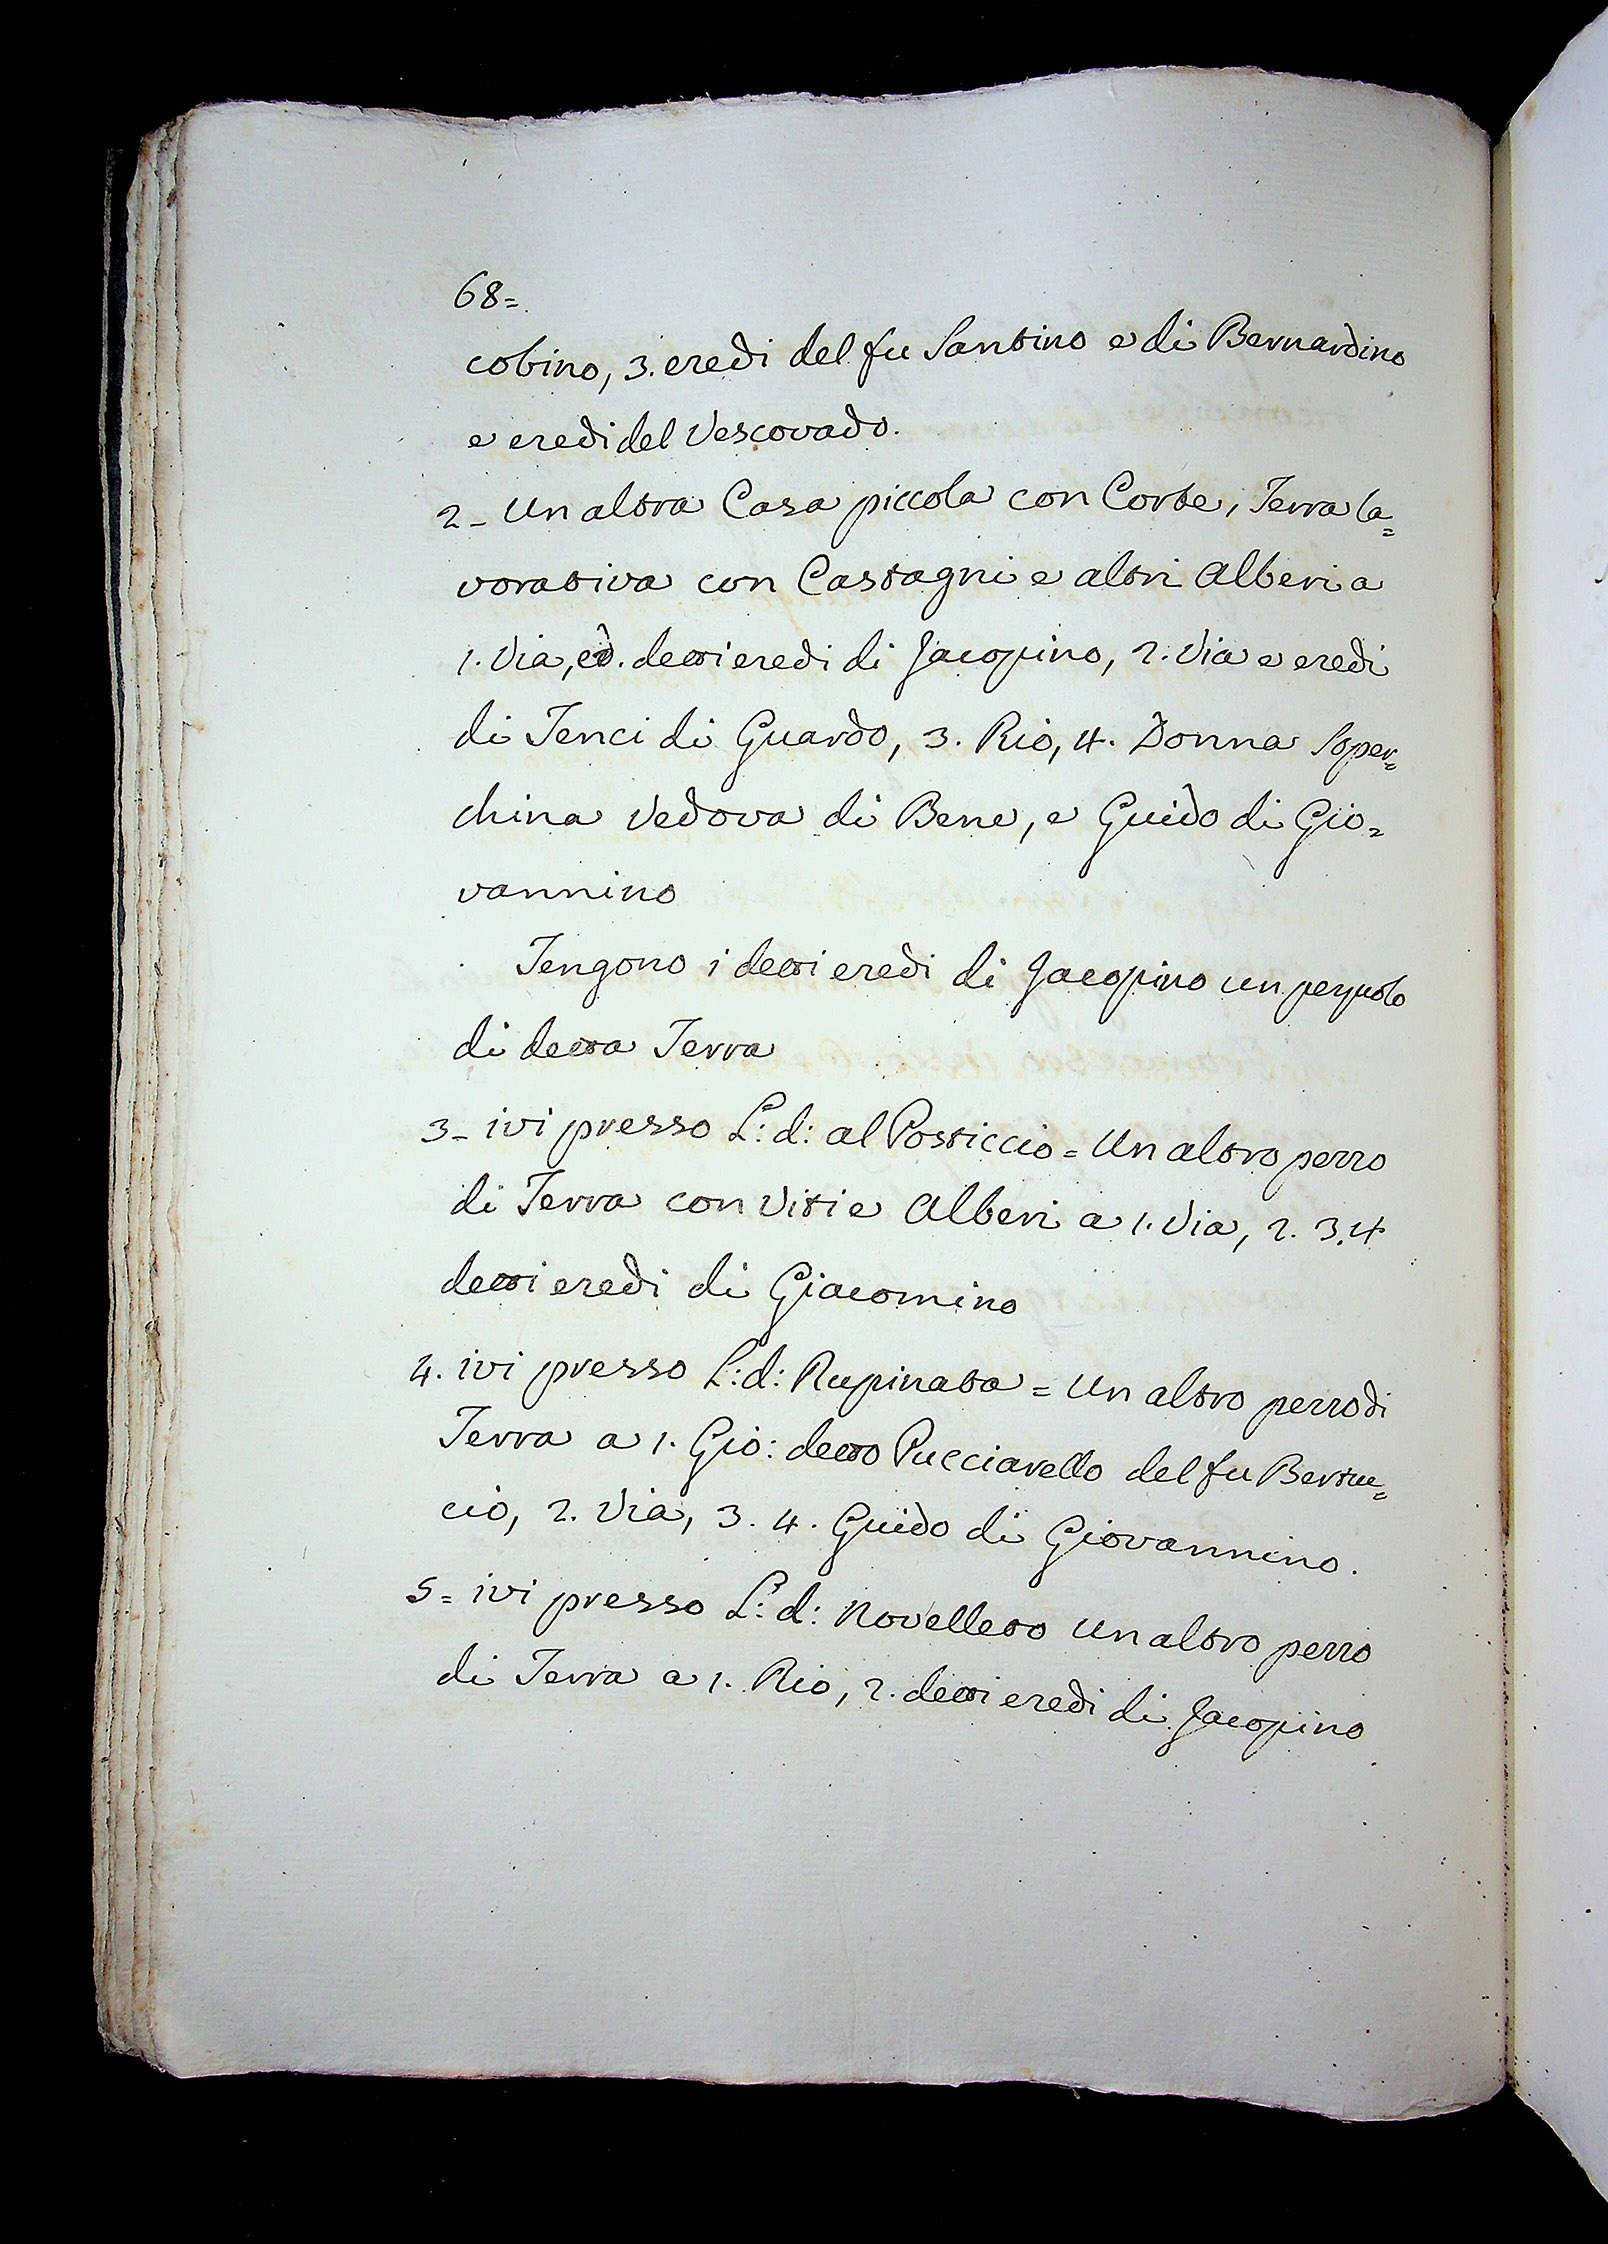 68=
cobino, 3. eredi del fu Santino e di Bernardino
e eredi del Vescovado.
2- Un altra Casa piccola con Corte, Terra la=
vorativa con Castagni e altri Alberi a
1. Via, ed. detti eredi di Jacopino, 2. Via e eredi
di Tenci di Guardo, 3. Rio, 4. Donna Soper=
china Vedova di Bene, e Guido di Gio=
vannino
Tengono i detti eredi di Jacopino un pezzuolo
di detta Terra
3- ivi presso L: d: al Posticcio = Un altro pezzo
di Terra con Viti e Alberi a 1. Via, 2. 3. 4
detti eredi di Giacomino
4. ivi presso L: d: Rupinata = Un altro pezzo di
Terra a 1. Gio: detto Pucciarello del fu Bertuc=
cio, 2. Via, 3. 4. Guido di Giovannino.
5= ivi presso L: d: Novelleto Un altro pezzo
di Terra a 1. Rio, 2. detti eredi di Jacopino